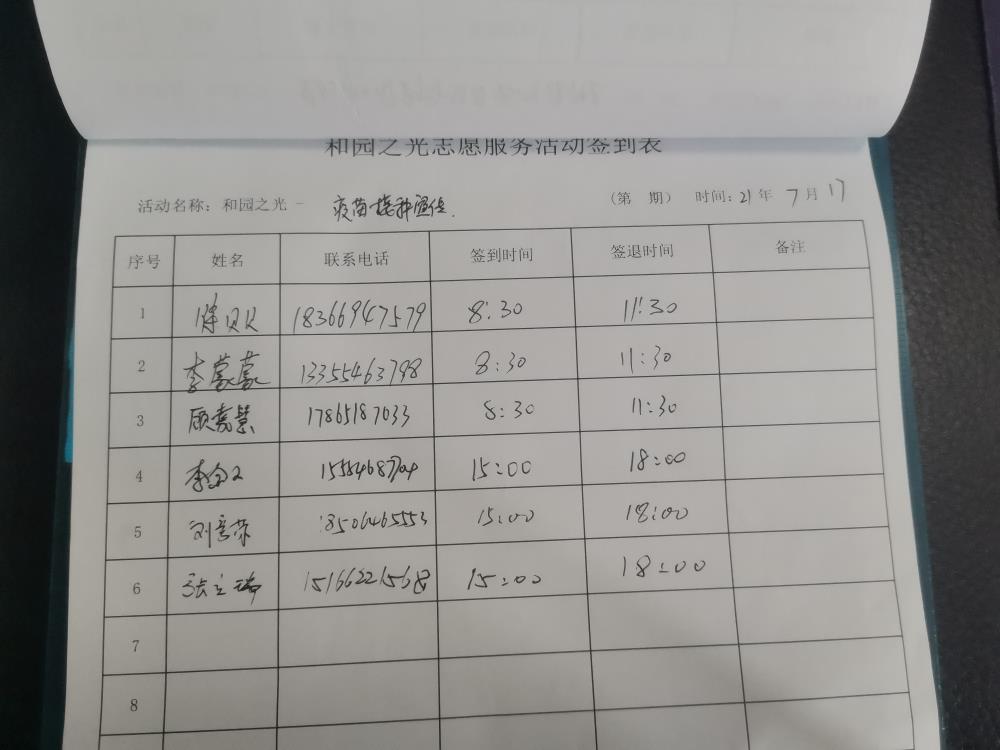 和园之光志愿服务活动签到表
活动名称：和园之光 - 疫苗接种宣传. （第 期） 时间：21年7月17
序号 姓名 联系电话 签到时间 签退时间 备注
1 贝贝 18366947579 8:30 11:30
2 李蒙蒙 13355463798 8:30 11:30
3 顾嘉慧 17865187033 8:30 11:30
4 李 15:00 18:00
5 刘 荣 18506465553 15:00 18:00
6 张立瑞 15166221568 15:00 18:00
7
8